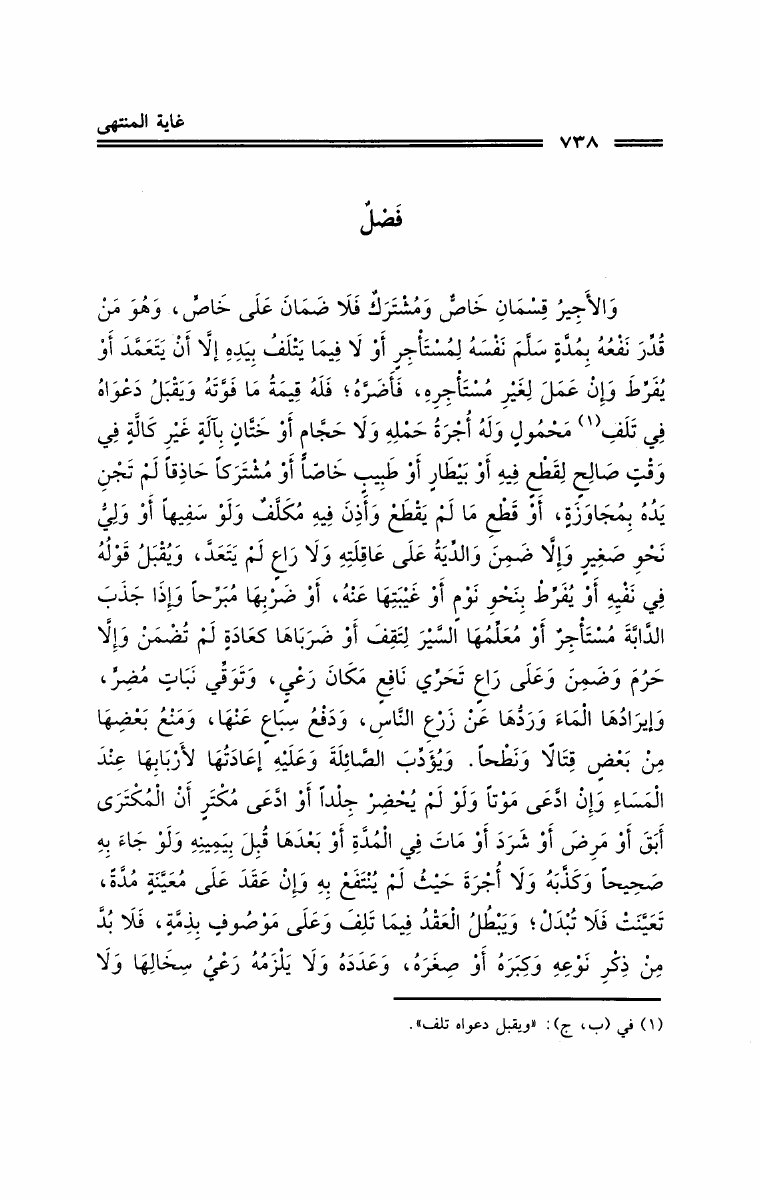 غاية المنتهى
٧٣٨
فَصْلٌ
وَالأَجِيرُ قِسْمَانِ خَاصٌّ وَمُشْتَرَكٌ فَلَا ضَمَانَ عَلَى خَاصٍّ، وَهُوَ مَنْ
قُدِّرَ نَفْعُهُ بِمُدَّةٍ سَلَّمَ نَفْسَهُ لِمُسْتَأْجِرٍ أَوْ لَا فِيمَا يَتْلَفُ بِيَدِهِ إلَّا أَنْ يَتَعَمَّدَ أَوْ
يُفَرِّطَ وَإِنْ عَمَلَ لِغَيْرِ مُسْتَأْجِرِهِ، فَأَضَرَّهُ؛ فَلَهُ قِيمَةُ مَا فَوَّتَهُ وَيَقْبَلُ دَعْوَاهُ
فِي تَلَفِ(١) مَحْمُولٍ وَلَهُ أُجْرَةُ حَمْلِهِ وَلَا حَجَّامٍ أَوْ خَتَّانٍ بِآلَةٍ غَيْرِ كَالَّةٍ فِي
وَقْتٍ صَالِحٍ لِقَطْعٍ فِيهِ أَوْ بَيْطَارٍ أَوْ طَبِيبٍ خَاصّاً أَوْ مُشْتَرَكاً حَاذِقاً لَمْ تَجْنِ
يَدُهُ بِمُجَاوَزَةٍ، أَوْ قَطْعِ مَا لَمْ يَقْطَعْ وَأَذِنَ فِيهِ مُكَلَّفٌ وَلَوْ سَفِيهاً أَوْ وَلِيُّ
نَحْوِ صَغِيرٍ وَإِلَّا ضَمِنَ وَالدِّيَةُ عَلَى عَاقِلَتِهِ وَلَا رَاعٍ لَمْ يَتَعَدَّ، وَيُقْبَلُ قَوْلُهُ
فِي نَفْيِهِ أَوْ يُفَرِّطْ بِنَحْوِ نَوْمٍ أَوْ غَيْبَتِهَا عَنْهُ، أَوْ ضَرْبِهَا مُبَرِّحاً وَإِذَا جَذَبَ
الدَّابَّةَ مُسْتَأْجِرٌ أَوْ مُعَلِّمُهَا السَّيْرَ لِتَقِفَ أَوْ ضَرَبَاهَا كعَادَةٍ لَمْ تُضْمَنْ وَإِلَّا
حَرُمَ وَضَمِنَ وَعَلَى رَاعٍ تَحَرِّي نَافِعِ مَكَانَ رَعْيٍ، وَتَوَقِّي نَبَاتٍ مُضِرٍّ،
وَإِيرَادُهَا الْمَاءَ وَرَدُّهَا عَنْ زَرْعِ النَّاسِ، وَدَفْعُ سِبَاعٍ عَنْهَا، وَمَنْعُ بَعْضِهَا
مِنْ بَعْضٍ قِتَالًا وَنَطْحاً. وَيُؤَدِّبَ الصَّائِلَةَ وَعَلَيْهِ إعَادَتُهَا لأَرْبَابِهَا عِنْدَ
الْمَسَاءِ وَإِنْ ادَّعَى مَوْتاً وَلَوْ لَمْ يُحْضِرْ جِلْداً أَوْ ادَّعَى مُكْتَرٍ أَنْ الْمُكْتَرَى
أَبَقَ أَوْ مَرِضَ أَوْ شَرَدَ أَوْ مَاتَ فِي الْمُدَّةِ أَوْ بَعْدَهَا قُبِلَ بِيَمِينِهِ وَلَوْ جَاءَ بِهِ
صَحِيحاً وَكَذَّبَهُ وَلَا أُجْرَةَ حَيْثُ لَمْ يُنْتَفَعْ بِهِ وَإِنْ عَقَدَ عَلَى مُعَيَّنَةٍ مُدَّةً،
تَعَيَّنَتْ فَلَا تُبْدَلْ؛ وَيَبْطُلُ الْعَقْدُ فِيمَا تَلِفَ وَعَلَى مَوْصُوفٍ بِذِمَّةٍ، فَلَا بُدَّ
مِنْ ذِكْرِ نَوْعِهِ وَكِبَرَهُ أَوْ صِغَرَهُ، وَعَدَدَهُ وَلَا يَلْزَمُهُ رَعْيُ سِخَالِهَا وَلَا
(١) في (ب، ج): «ويقبل دعواه تلف».